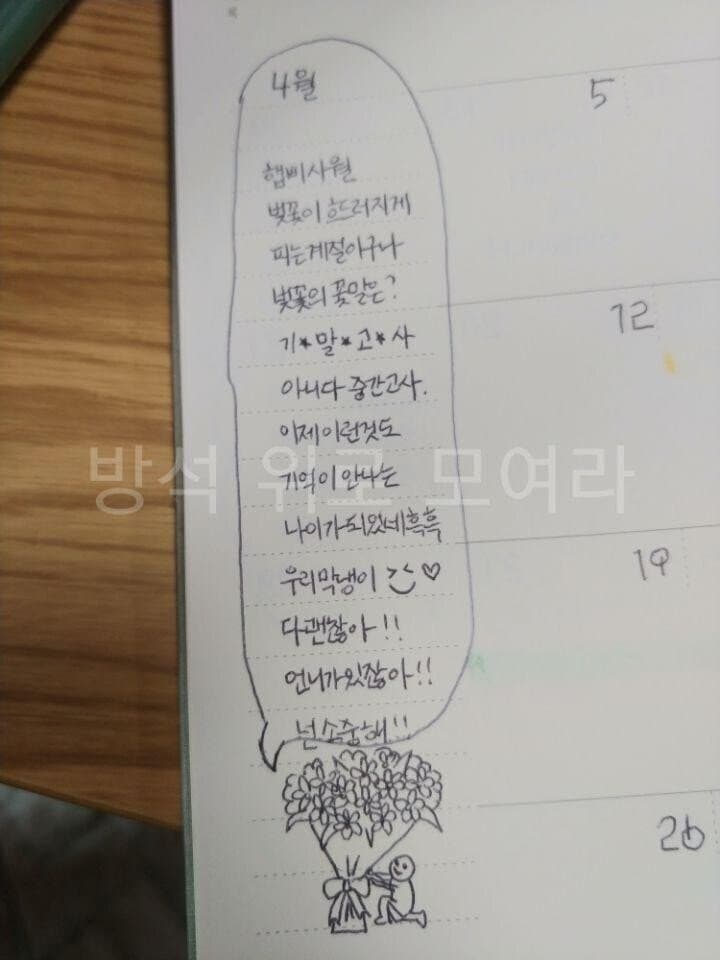 4월
5
햅삐사월
벚꽃이 흐드러지게
피는계절이구나
벚꽃의 꽃말은?
12
기*말*고*사
아니다 중간고사.
이제 이런것도
기억이 안나는
방석 위로 모여라
나이가되었네흑흑
19
우리막냉이 ♡
다괜찮아!!
언니가있잖아!!
넌소중해!!
26